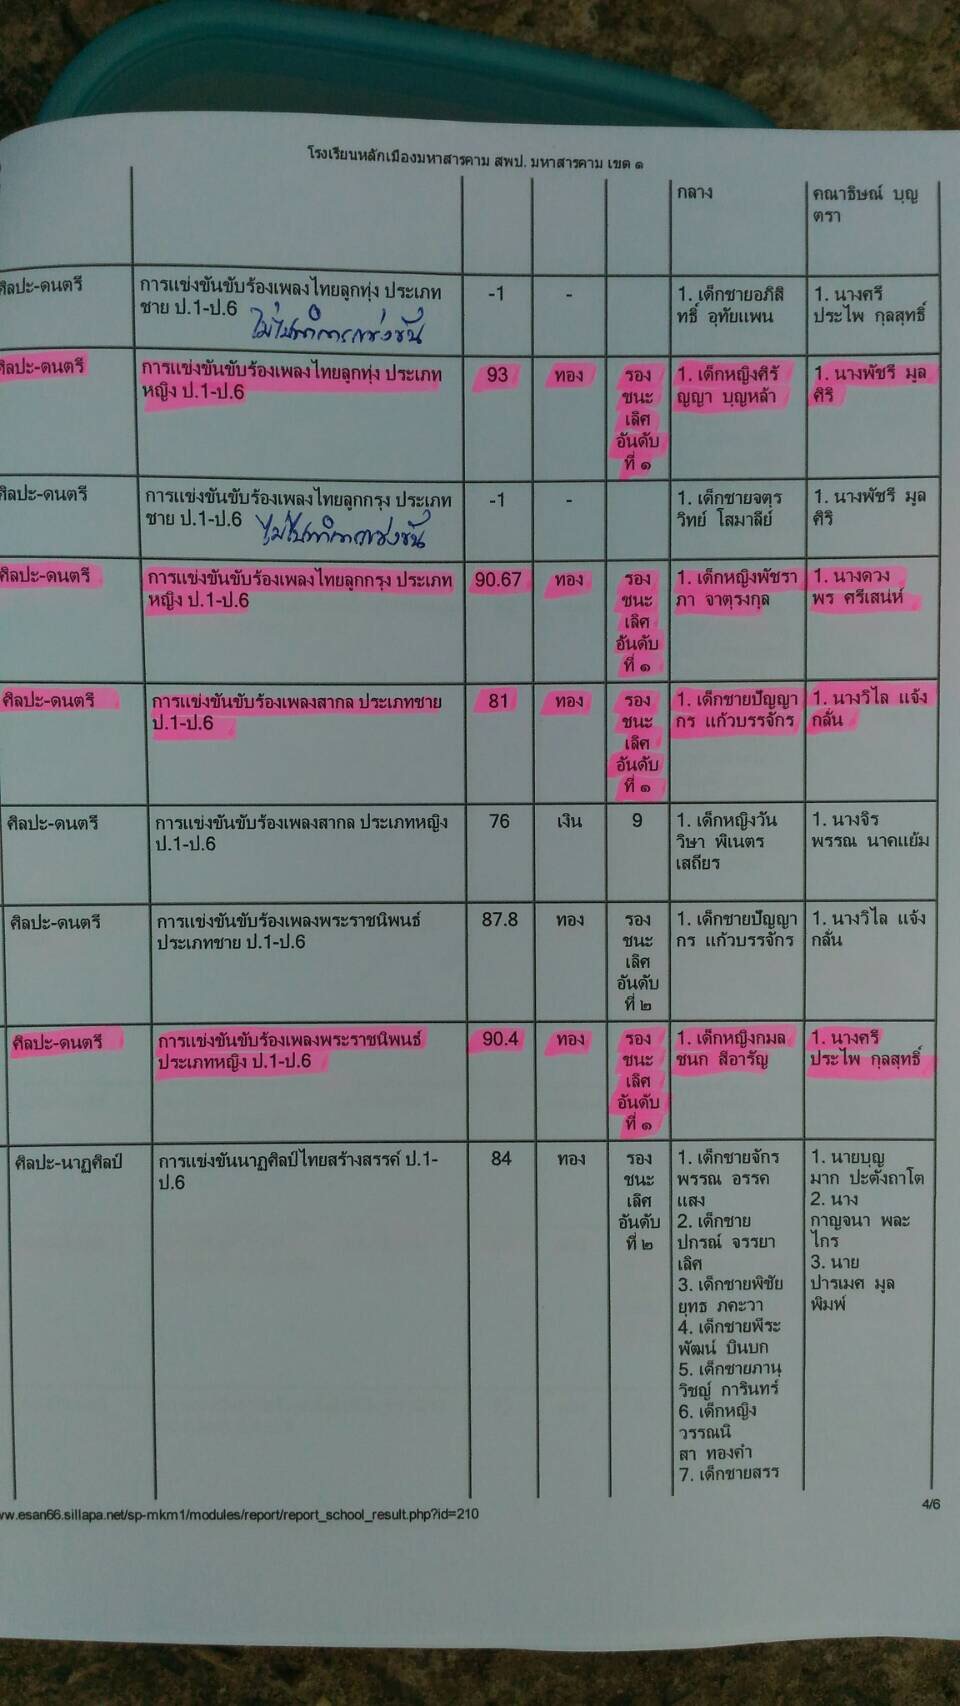 โรงเรียนหลักเมืองมหาสารคาม สพป. มหาสารคาม เขต ๑
กลาง
คณาธิษณ์ บุญ
ตรา
ศิลปะ-ดนตรี
การแข่งขันขับร้องเพลงไทยลูกทุ่ง ประเภท
ชาย ป.1-ป.6
-1
-
1. เด็กชายอภิสิ
ทธิ์ อุทัยแพน
1. นางศรี
ประไพ กุลสุทธิ์
ศิลปะ-ดนตรี
การแข่งขันขับร้องเพลงไทยลูกทุ่ง ประเภท
หญิง ป.1-ป.6
93
ทอง
รอง
ชนะ
เลิศ
อันดับ
ที่ ๑
1. เด็กหญิงศิรั
ญญา บุญหล้า
1. นางพัชรี มูล
ศิริ
ศิลปะ-ดนตรี
การแข่งขันขับร้องเพลงไทยลูกกรุง ประเภท
ชาย ป.1-ป.6
-1
-
1. เด็กชายจตุร
วิทย์ โสมาลีย์
1. นางพัชรี มูล
ศิริ
ศิลปะ-ดนตรี
การแข่งขันขับร้องเพลงไทยลูกกรุง ประเภท
หญิง ป.1-ป.6
90.67
ทอง
รอง
ชนะ
เลิศ
อันดับ
ที่ ๑
1. เด็กหญิงพัชรา
ภา จาตุรงกุล
1. นางดวง
พร ศรีเสน่ห์
ศิลปะ-ดนตรี
การแข่งขันขับร้องเพลงสากล ประเภทชาย
ป.1-ป.6
81
ทอง
รอง
ชนะ
เลิศ
อันดับ
ที่ ๑
1. เด็กชายปัญญา
กร แก้วบรรจักร
1. นางวิไล แจ้ง
กลั่น
ศิลปะ-ดนตรี
การแข่งขันขับร้องเพลงสากล ประเภทหญิง
ป.1-ป.6
76
เงิน
9
1. เด็กหญิงวัน
วิษา พิเนตร
เสถียร
1. นางจิร
พรรณ นาคแย้ม
ศิลปะ-ดนตรี
การแข่งขันขับร้องเพลงพระราชนิพนธ์
ประเภทชาย ป.1-ป.6
87.8
ทอง
รอง
ชนะ
เลิศ
อันดับ
ที่ ๒
1. เด็กชายปัญญา
กร แก้วบรรจักร
1. นางวิไล แจ้ง
กลั่น
ศิลปะ-ดนตรี
การแข่งขันขับร้องเพลงพระราชนิพนธ์
ประเภทหญิง ป.1-ป.6
90.4
ทอง
รอง
ชนะ
เลิศ
อันดับ
ที่ ๑
1. เด็กหญิงกมล
ชนก สีอารัญ
1. นางศรี
ประไพ กุลสุทธิ์
ศิลปะ-นาฏศิลป์
การแข่งขันนาฏศิลป์ไทยสร้างสรรค์ ป.1-
ป.6
84
ทอง
รอง
ชนะ
เลิศ
อันดับ
ที่ ๒
1. เด็กชายจักร
พรรณ อรรค
แสง
2. เด็กชาย
ปกรณ์ จรรยา
เลิศ
3. เด็กชายพิชัย
ยุทธ ภคะวา
4. เด็กชายพีระ
พัฒน์ บินบก
5. เด็กชายภานุ
วิชญ์ การินทร์
6. เด็กหญิง
วรรณนิ
สา ทองคำ
7. เด็กชายสรร
1. นายบุญ
มาก ปะตังถาโต
2. นาง
กาญจนา พละ
ไกร
3. นาย
ปารเมศ มูล
พิมพ์
ww.esan66.sillapa.net/sp-mkm1/modules/report/report_school_result.php?id=210
4/6